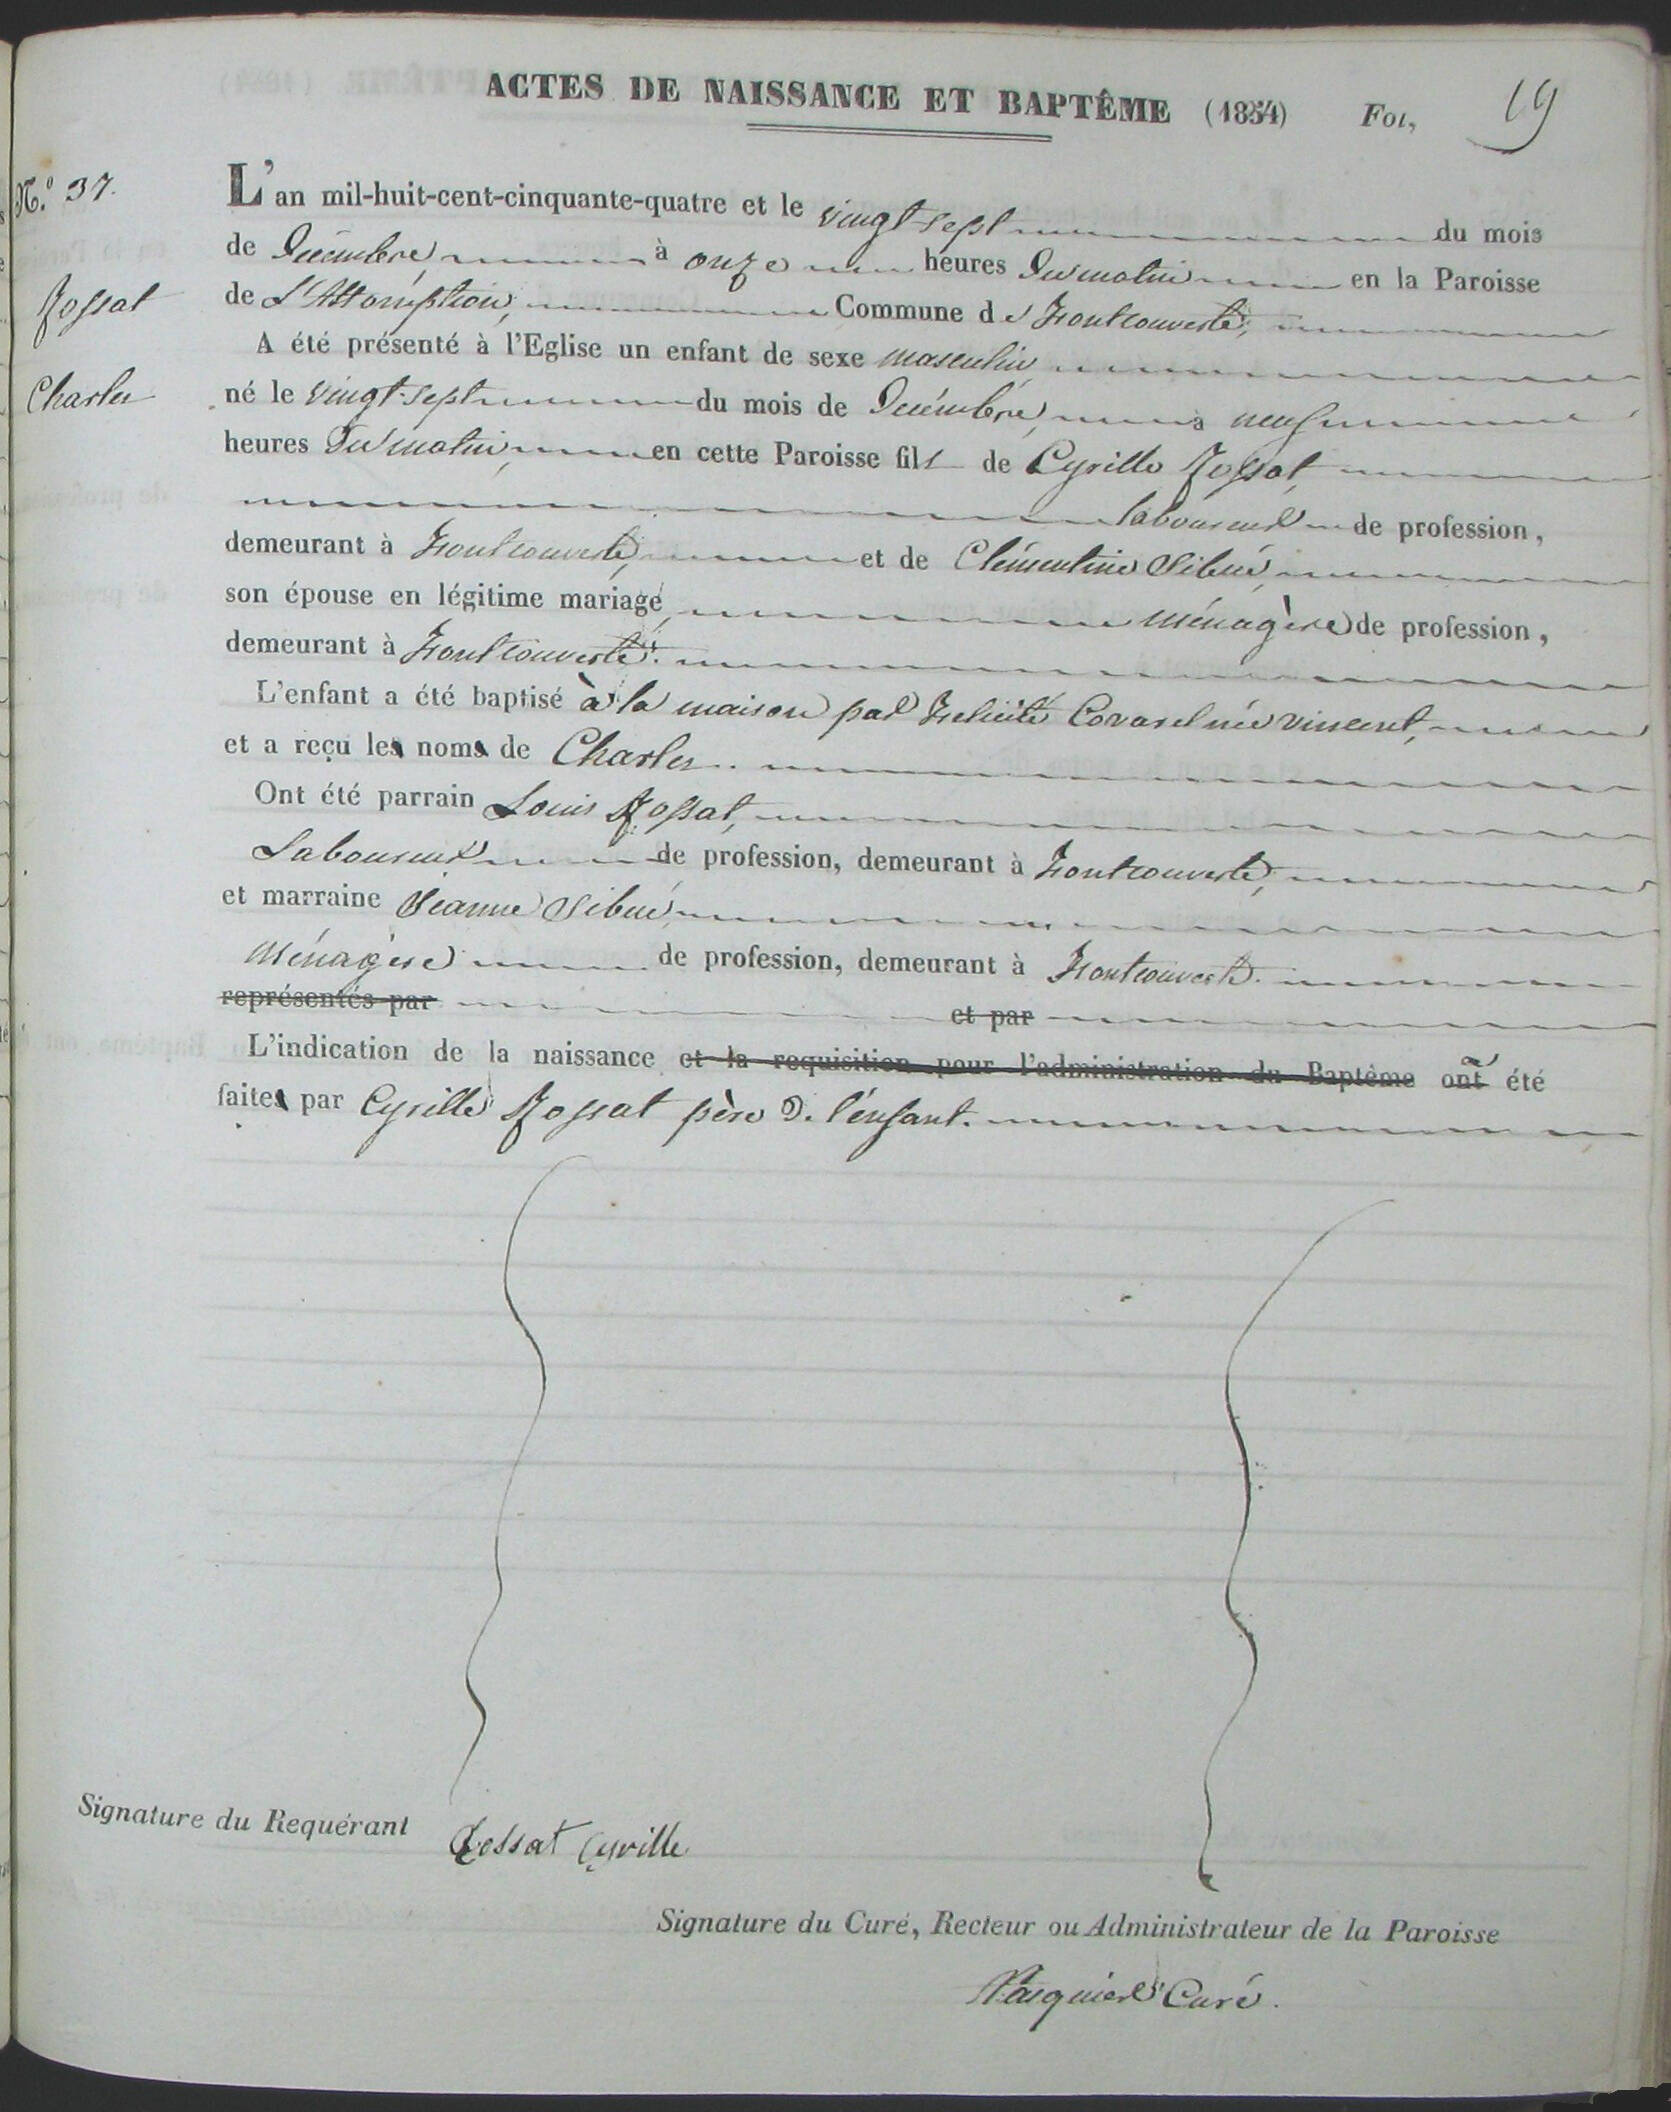 ACTES DE NAISSANCE ET BAPTÊME (1854) Fol, 19
N.º 37.
Rossat
Charles
L'an mil-huit-cent-cinquante-quatre et le vingt-sept du mois
de Décembre, à onze heures du matin en la Paroisse
de L'Assomption, Commune de Fontcouverte,
A été présenté à l'Eglise un enfant de sexe masculin
né le vingt-sept du mois de Décembre, à neuf
heures du matin, en cette Paroisse fils de Cyrille Rossat,
laboureur de profession,
demeurant à Fontcouverte, et de Clémentine Sibué,
son épouse en légitime mariage, ménagère de profession,
demeurant à Fontcouverte.
L'enfant a été baptisé à la maison par Felicité Covarel née vincent,
et a reçu les noms de Charles.
Ont été parrain Louis Rossat,
Laboureur de profession, demeurant à Fontcouverte,
et marraine Jeanne Sibué,
ménagère de profession, demeurant à Fontcouverte.
représentés par et par
L'indication de la naissance et la requisition pour l'administration du Baptême ont a été
faites par Cyrille Rossat père de l'enfant.
Signature du Requérant Rossat Cyrille
Signature du Curé, Recteur ou Administrateur de la Paroisse
Pasquier Curé.